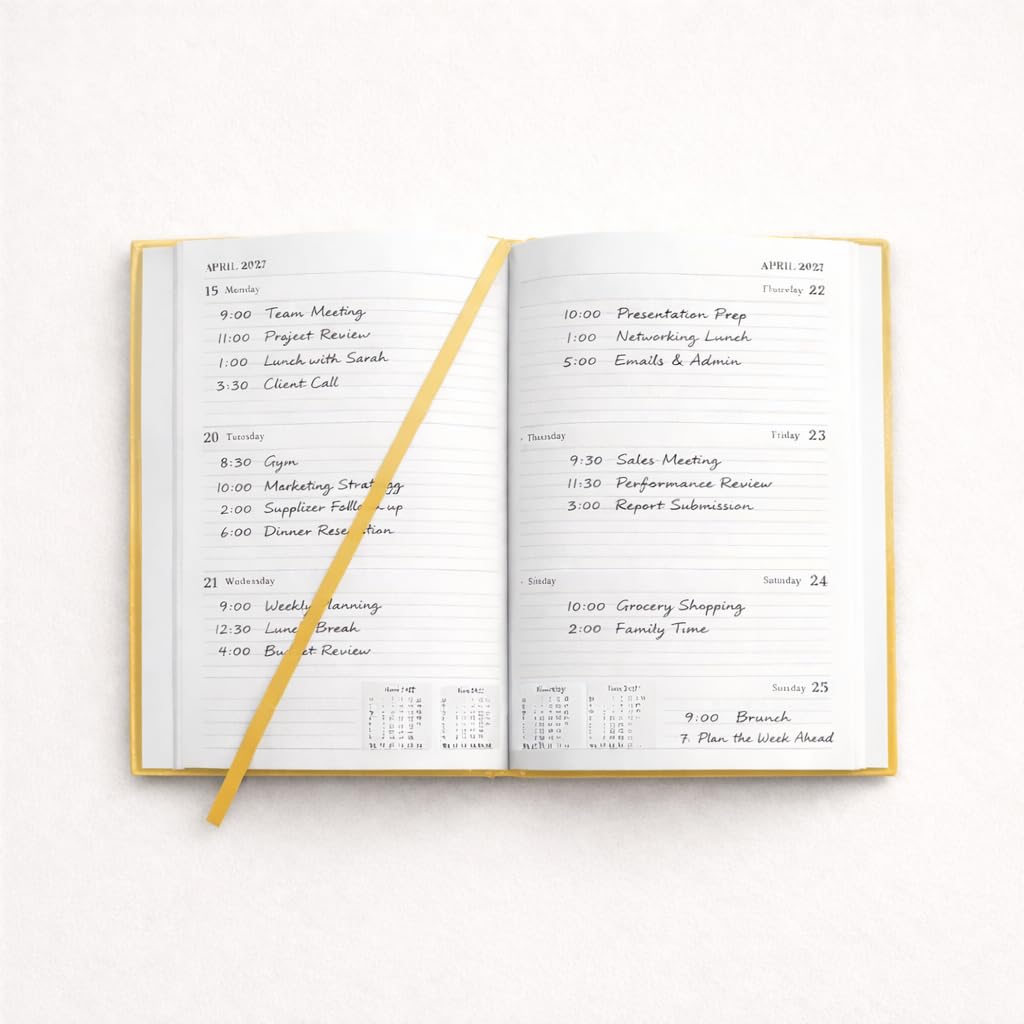 APRIL 2027
15 Monday
9:00 Team Meeting
11:00 Project Review
1:00 Lunch with Sarah
3:30 Client Call
20 Tuesday
8:30 Gym
10:00 Marketing
2:00 Supplizer
6:00 Dinner
21 Wednesday
9:00 Weekly
12:30 Break
4:00 Review
APRIL 2027
22
10:00 Presentation Prep
1:00 Networking Lunch
5:00 Emails & Admin
Friday 23
9:30 Sales Meeting
11:30 Performance Review
3:00 Report Submission
24
10:00 Grocery Shopping
2:00 Family Time
Sunday 25
9:00 Brunch
7. Plan the Week Ahead